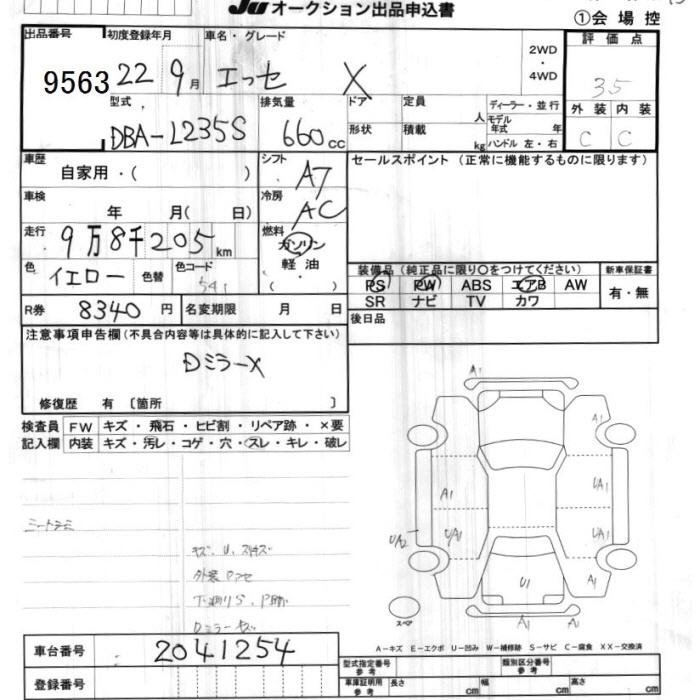 JU オークション出品申込書
①会場控
出品番号 9563
初度登録年月 22 9月
車名・グレード エッセ X
2WD・4WD
評価点 35
外装 C 内装 C
型式 DBA-L235S
排気量 660 cc
ドア 形状
定員 人 積載 kg
ディーラー・並行
モデル年式 年
ハンドル 左・右
車歴 自家用・( )
シフト AT
セールスポイント (正常に機能するものに限ります)
車検 年 月( 日)
冷房 AC
走行 9万8千205km
燃料 ガソリン 軽油 ( )
色 イエロー 色替 色コード 541
装備品 (純正品に限り○をつけてください)
PS PW ABS エアB AW
SR ナビ TV カワ
新車保証書 有・無
R券 8340 円 名変期限 月 日
後日品
注意事項申告欄 (不具合内容等は具体的に記入して下さい)
Dミラー×
修復歴 有 〔箇所 〕
検査員記入欄
FW キズ・飛石・ヒビ割・リペア跡・×要
内装 キズ・汚レ・コゲ・穴・スレ・キレ・破レ
キズ、U、スリキズ
Dミラーキズ
A1
A1
A1 UA1
UA2 UA1 UA1
U1 A1
A1 A1
スペア
A-キズ E-エクボ U-凹み W-補修跡 S-サビ C-腐食 XX-交換済
車台番号 2041254
登録番号
型式指定番号 参考 類別区分番号 参考
車庫証明用 参考 長さ cm 幅 cm 高さ cm